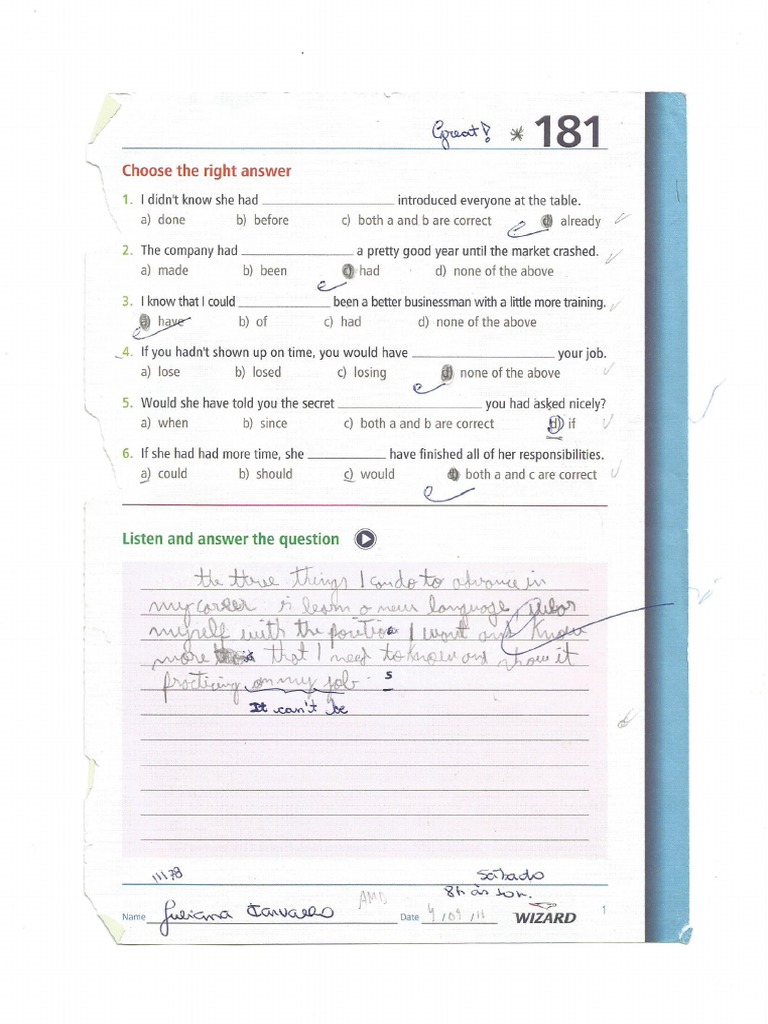 Great! * 181
Choose the right answer
1. I didn't know she had ____________ introduced everyone at the table.
a) done b) before c) both a and b are correct d) already
2. The company had ____________ a pretty good year until the market crashed.
a) made b) been c) had d) none of the above
3. I know that I could ____________ been a better businessman with a little more training.
a) have b) of c) had d) none of the above
4. If you hadn't shown up on time, you would have ____________ your job.
a) lose b) losed c) losing d) none of the above
5. Would she have told you the secret ____________ you had asked nicely?
a) when b) since c) both a and b are correct d) if
6. If she had had more time, she ____________ have finished all of her responsibilities.
a) could b) should c) would d) both a and c are correct
Listen and answer the question
the three things I can do to advance in
my career is learn a new language,
myself with the I want and know
more that I need to know and show it
practicing on my job. s
It can't be
11178 sábado
8h às 10h.
Name Juliana Carvalho AMD Date 4/09/11 WIZARD 1